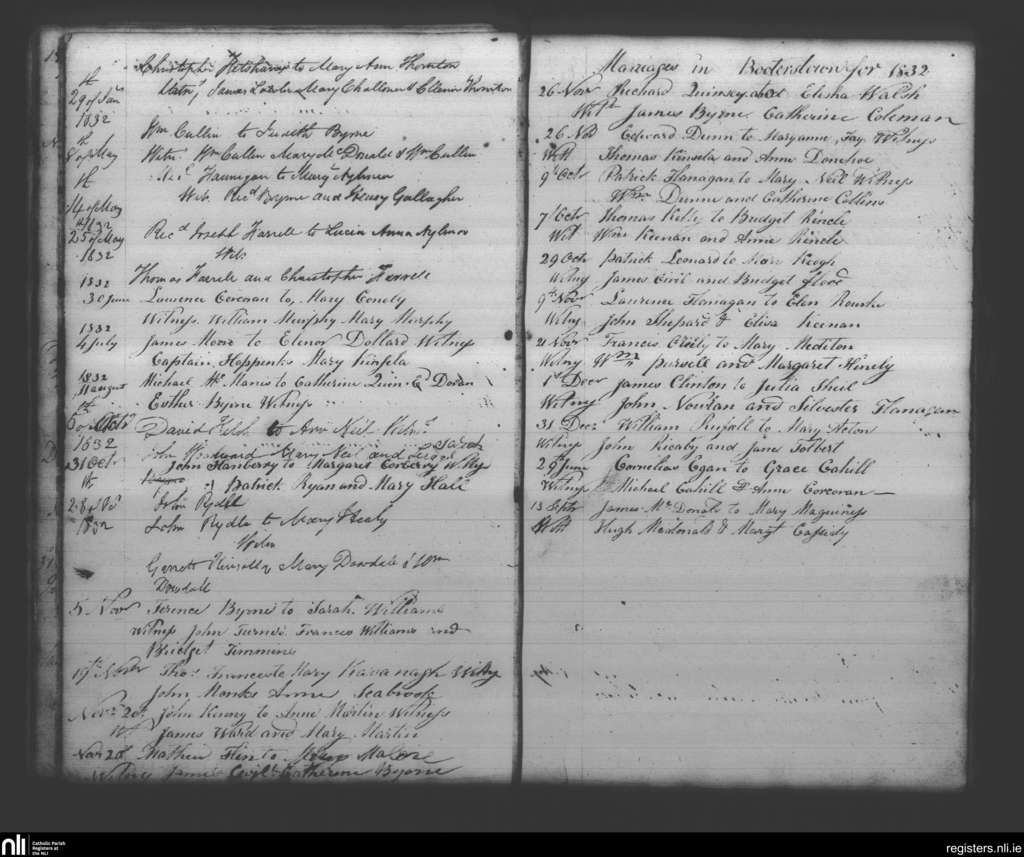 Christopher to Mary Ann Thornton
29 of Jan
James Mary Challoner & Ellenor Thornton
1832
Wm Cullen to Judeth Byrne
8 of May Witn. Wm Cullen Mary Mc Donald & Wm Cullen
th
Flannagan to Mary Aylmor
14 of May
Wits. Recd Byrne and Henry Gallagher
1832
25 of May Recd Joseph Farrell to Lucia Anna Aylmor
1832 Wits
1832 Thomas Farrele and Christopher Ferrele
30 June Lawrence Corcoran to Mary Conely
Witness William Murphy Mary Murphy
1832
4 July James Moore to Elenor Dollard Witness
Captain Happenks Mary Kinsela
1832
11 August Michael Mc Manus to Catherine Quin Ed Doran
Esther Byrne Witness
th
6 of Octr David to Ann Neil Witns
1832
John Woodward Mary Neil and
31 Oct John Hanberry to Margaret Corberry Witny
th Patrick Ryan and Mary Hall
28 of No John Rydle
1832 John Rydle to Mary Healy
Witn
Garrett Mary Dowdale & Wm
Dowdale
5 Nov Terence Byrne to Sarah Williams
Witness John Turner Frances Williams and
Bridget Timmins
19th Nover Thos to Mary Kavanagh Witny
John Monks Anne Seabrook
Novr 20th John Kenny to Anne Martin Witness
James Ward and Mary Martin
Novr 20 Mathew Flin to Mary Malone
Witny James Civil Catherine Byrne
Marriages in Booterstown for 1832
26 Nov Richard Quinsey and Elisha Walsh
Wit James Byrne Catherine Coleman
26 Nov Edward Dunn to Maryanne Fay Witness
Witt Thomas Kinsela and Anne Donehoe
9th Octr Patrick Flanagan to Mary Neil Witness
Wm Dunne and Catherine Collins
7 Octr Thomas to Bridget Kincle
Wit Wm Keenan and Anne Kincle
29 Octr Patrick Leonard to Keogh
Witny James Civil and Bridget Flood
9th Nov Laurence Flanagan to Elen Rourke
Witny John Shepard & Eliza Keenan
21 Nov Francis to Mary
Witny Wm Pursell and Margaret Hinely
1st Decr James Clinton to Julia Sheil
Witny John Nowlan and Silvester Flanagan
31 Decr William to Mary Acton
Witny John and Jane Tolbert
29th June Cornelius Egan to Grace Cahill
Witness Michael Cahill & Ann Corcoran
13 Septr James Mc Donald to Mary Maguiness
Witt Hugh Mcdonald & Margt Cassidy
nli
Catholic Parish
Registers at
the NLI
registers.nli.ie